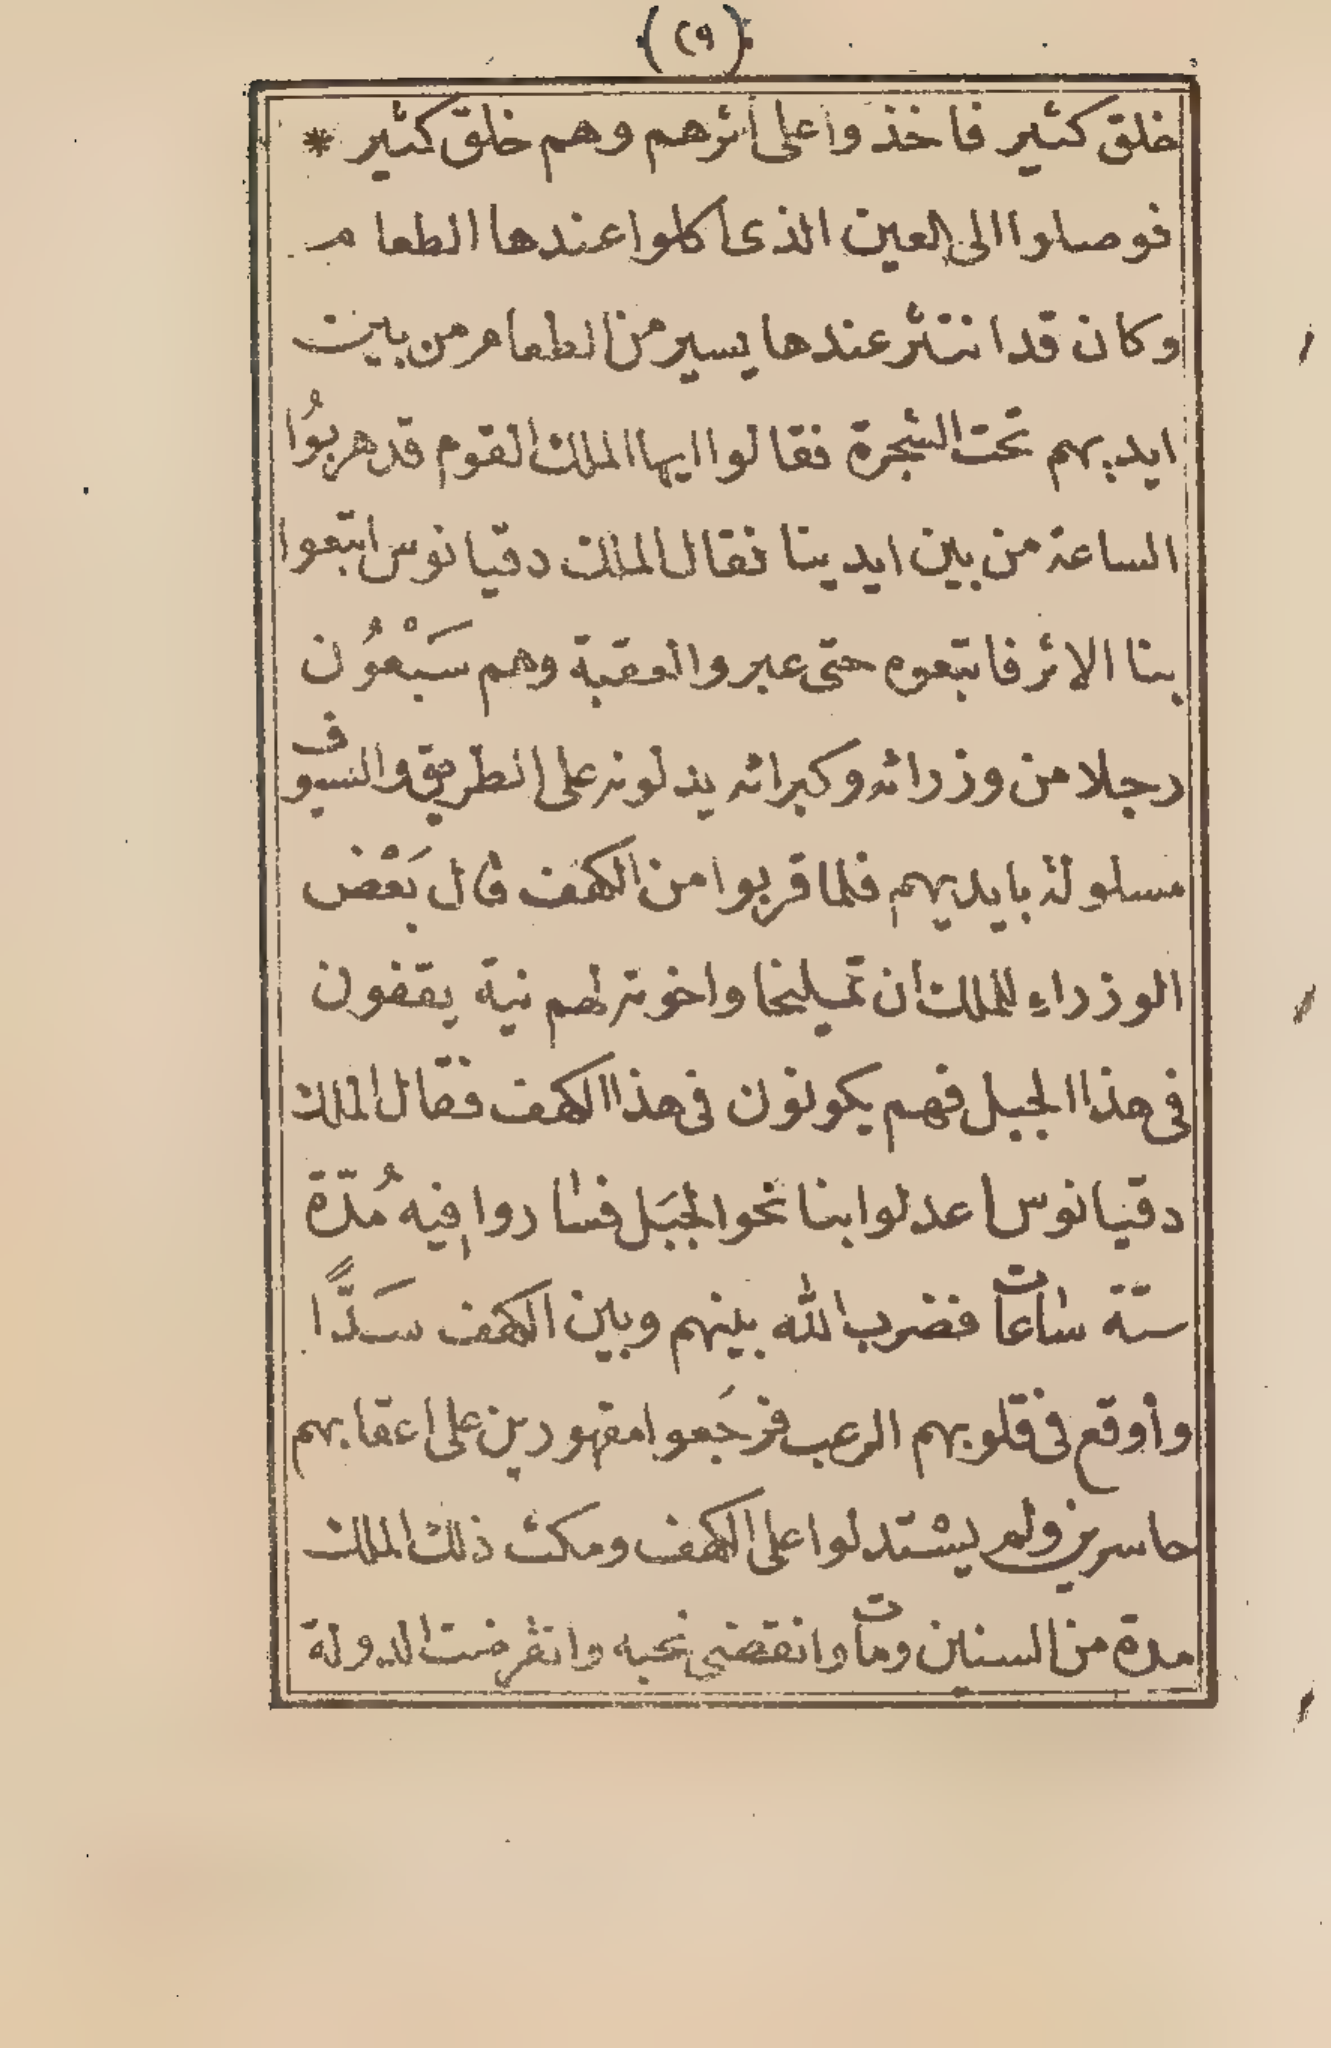 (٢٩)
خلق كثير فاخذوا على أثرهم وهم خلق كثير *
فوصلوا الى العين الذى اكلوا عندها الطعام
وكان قد انتثر عندها يسير من الطعام من بين
ايديهم تحت الشجرة فقالوا ايها الملك القوم قد هربُوا
الساعة من بين ايدينا فقال الملك دقيانوس اتبعوا
بنا الاثر فاتبعوه حتى عبروا العقبة وهم سَبْعُون
رجلا من وزرائه وكبرائه يدلونه على الطريق والسيوف
مسلولة بايديهم فلما قربوا من الكهف قال بَعْض
الوزراء للملك ان تمليخا واخوته لهم نية يقفون
فى هذا الجبل فهم يكونون فى هذا الكهف فقال الملك
دقيانوس اعدلوا بنا نحو الجبَل فساروا فيه مُدّة
ستّة ساعات فضرب الله بينهم وبين الكهف سَدًّا
وأوقع فى قلوبهم الرعب فرجَعوا مقهورين على اعقابهم
خاسرين ولم يستدلوا على الكهف ومكث ذلك الملك
مدة من السنين ومات وانقضى نحبه وانقرضت الدولة